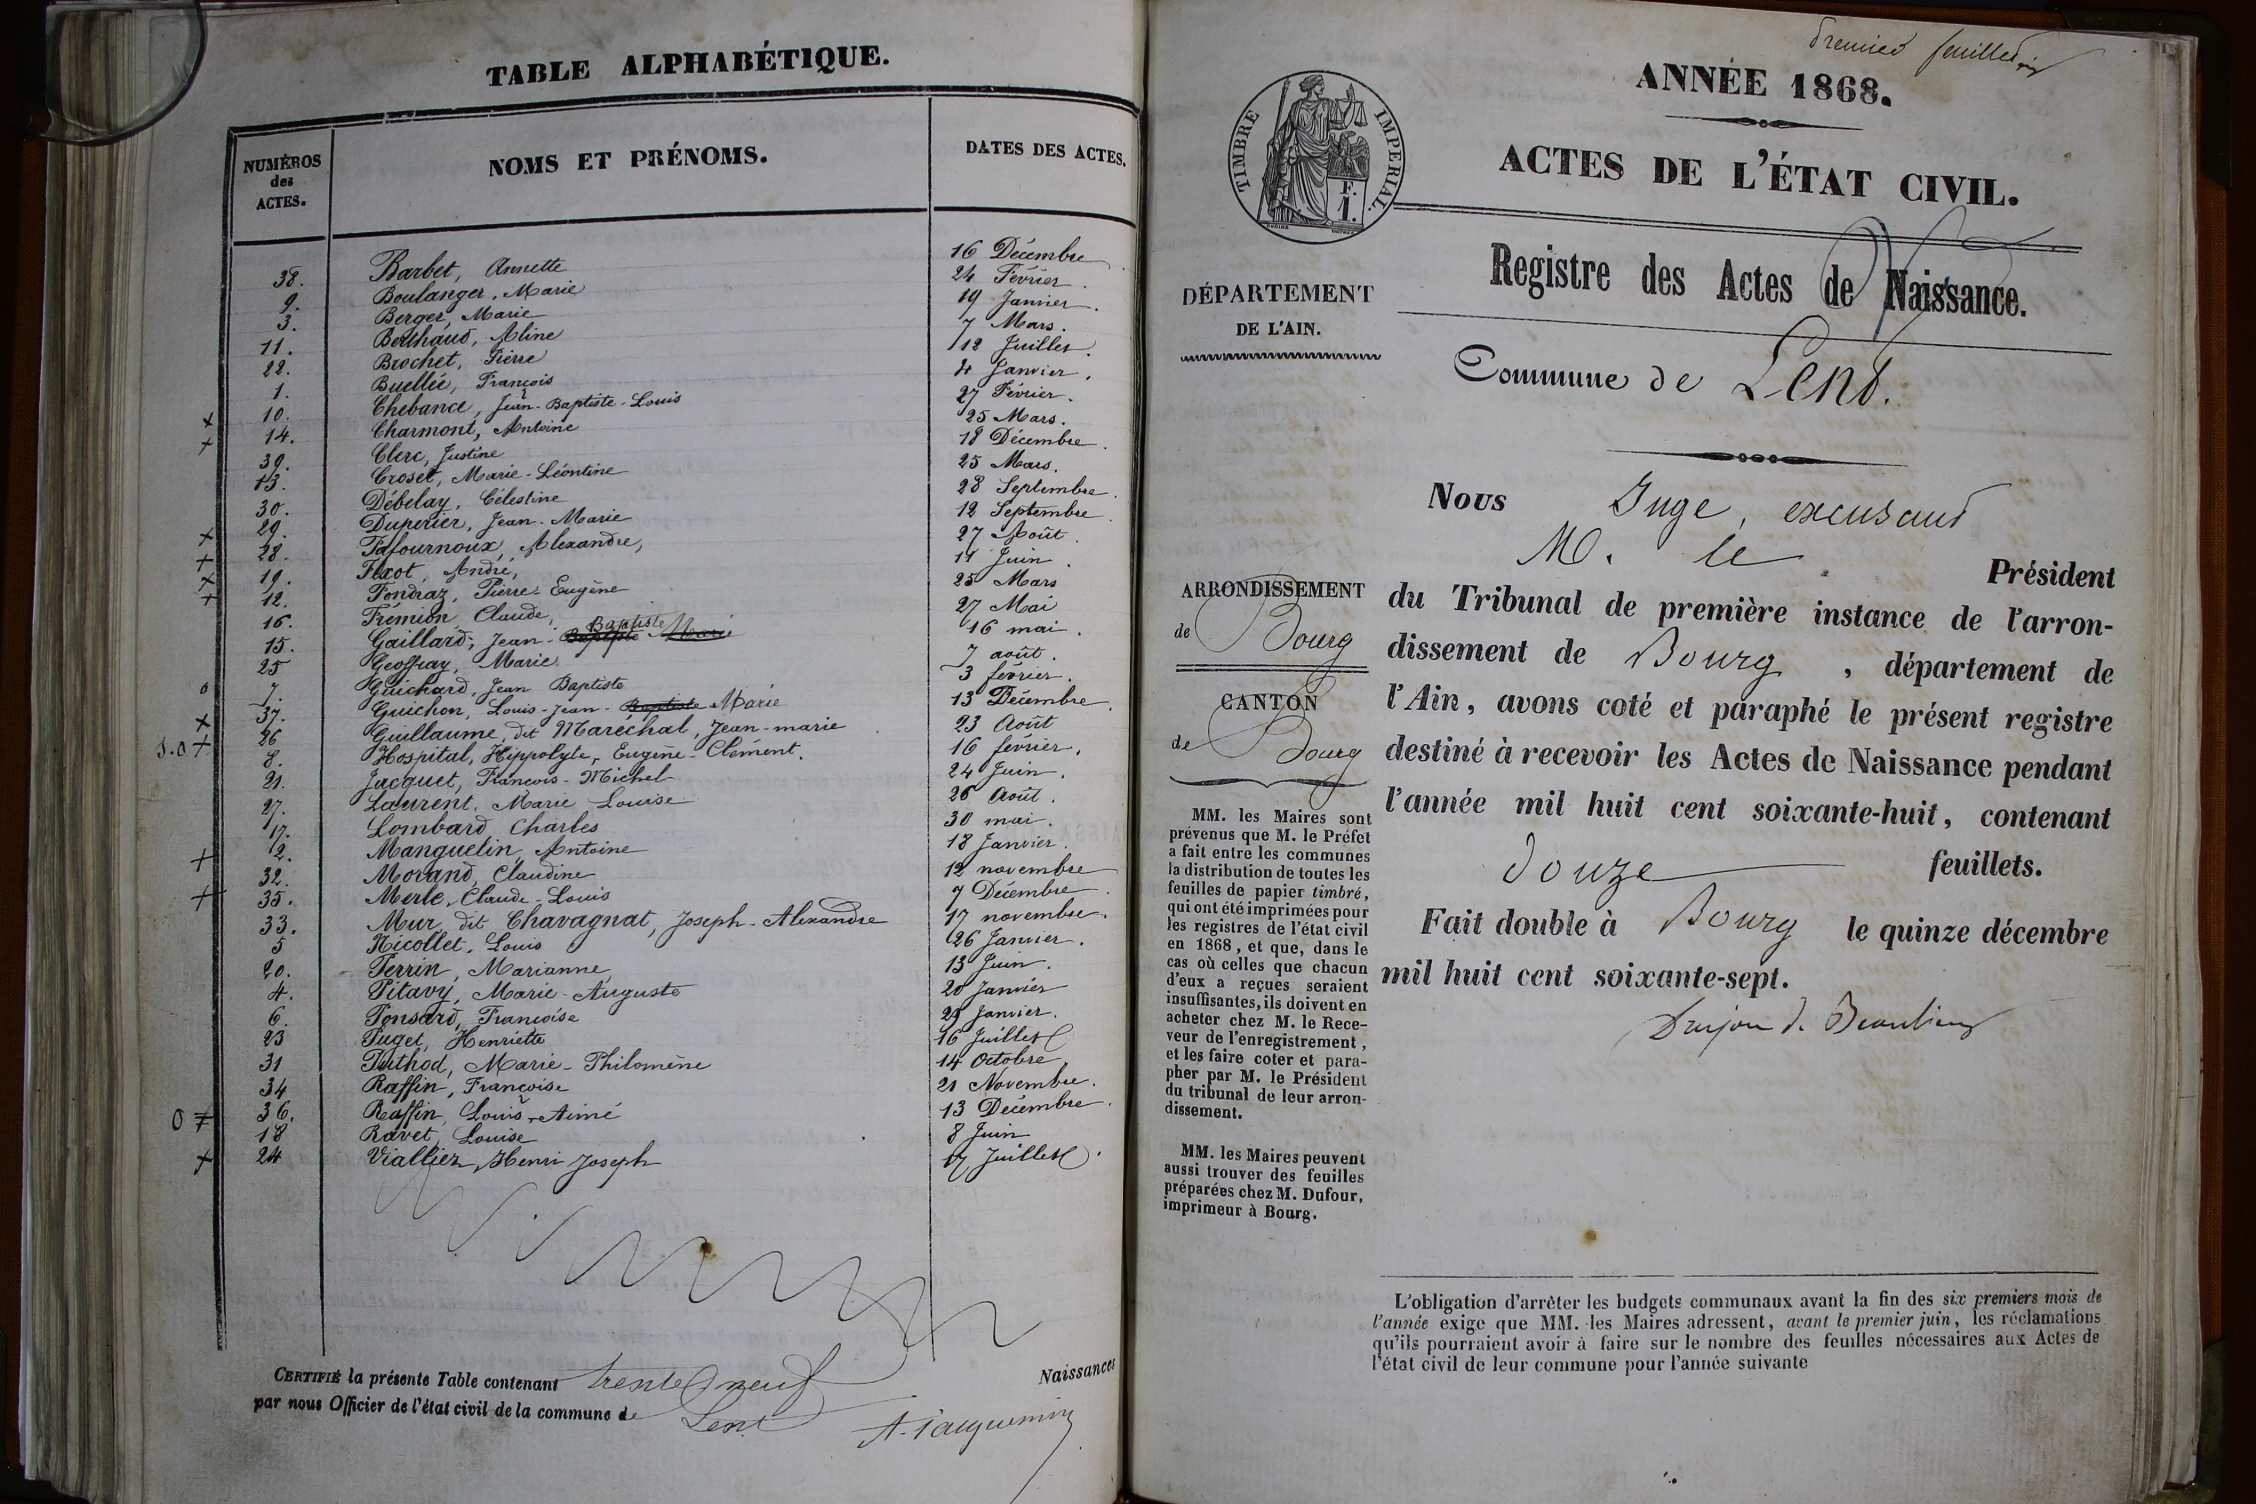 TABLE ALPHABÉTIQUE.
NUMÉROS des ACTES.
NOMS ET PRÉNOMS.
DATES DES ACTES.
38. Barbet, Annette 16 Décembre
9. Boulanger, Marie 24 Février.
3. Berger, Marie 19 Janvier.
11. Berthaud, Aline 7 Mars.
22. Brochet, Pierre 12 Juillet.
1. Buellée, François 4 Janvier.
10. Chebance, Jean-Baptiste-Louis 27 Février.
x 14. Charmont, Antoine 25 Mars.
+ 39. Clerc, Justine 18 Décembre.
13. Croset, Marie-Léontine 25 Mars.
30. Débelay, Célestine 28 Septembre.
29. Duperier, Jean-Marie 12 Septembre.
x 28. Fafournoux, Alexandre, 27 Août.
+ 19. Fixot, André, 11 Juin.
x 12. Fondraz, Pierre-Eugène 25 Mars
+ 16. Frémion, Claude, 27 Mai
15. Gaillard, Jean-Baptiste 16 mai.
25 Geoffray, Marie 7 août.
7. Guichard, Jean Baptiste 3 février.
37. Guichon, Louis-Jean-Baptiste Marie 13 Décembre.
x 26 Guillaume, dit Maréchal, Jean-marie 23 Août
8. Hospital, Hippolyte, Eugène-Clément. 16 février.
21. Jacquet, François-Michel 24 Juin.
27. Laurent, Marie Louise 26 Août.
17. Lombard, Charles 30 mai.
2. Manguelin, Antoine 18 Janvier.
+ 32. Morand, Claudine 12 novembre
+ 35. Merle, Claude-Louis 7 Décembre.
33. Mur, dit Chavagnat, Joseph-Alexandre 17 novembre.
5 Nicollet, Louis 26 Janvier.
20. Perrin, Marianne, 13 Juin.
4. Pitavy, Marie-Auguste 20 Janvier
6. Ponsard, Françoise Janvier.
23 Puget, Henriette 16 Juillet
31 Puthod, Marie-Philomène 14 Octobre
34 Raffin, Françoise 21 Novembre.
36. Raffin, Louis-Aimé 13 Décembre.
18 Ravet, Louise 8 Juin
x 24 Viallier, Henri Joseph 17 Juillet.
CERTIFIÉ la présente Table contenant trente neuf Naissances
par nous Officier de l'état civil de la commune de Lent
A. Jacquemin
Premier feuillet
ANNÉE 1868.
TIMBRE IMPERIAL.
F.
1.
ACTES DE L'ÉTAT CIVIL.
Registre des Actes de Naissance.
DÉPARTEMENT
DE L'AIN.
Commune de Lent.
Nous Juge, excusant
M. le Président
ARRONDISSEMENT
de Bourg
CANTON
de Bourg
du Tribunal de première instance de l'arron-
dissement de Bourg, département de
l'Ain, avons coté et paraphé le présent registre
destiné à recevoir les Actes de Naissance pendant
l'année mil huit cent soixante-huit, contenant
douze feuillets.
Fait double à Bourg le quinze décembre
mil huit cent soixante-sept.
MM. les Maires sont
prévenus que M. le Préfet
a fait entre les communes
la distribution de toutes les
feuilles de papier timbré,
qui ont été imprimées pour
les registres de l'état civil
en 1868, et que, dans le
cas où celles que chacun
d'eux a reçues seraient
insuffisantes, ils doivent en
acheter chez M. le Rece-
veur de l'enregistrement,
et les faire coter et para-
pher par M. le Président
du tribunal de leur arron-
dissement.
MM. les Maires peuvent
aussi trouver des feuilles
préparées chez M. Dufour,
imprimeur à Bourg.
L'obligation d'arrêter les budgets communaux avant la fin des six premiers mois de
l'année exige que MM. les Maires adressent, avant le premier juin, les réclamations
qu'ils pourraient avoir à faire sur le nombre des feuilles nécessaires aux Actes de
l'état civil de leur commune pour l'année suivante